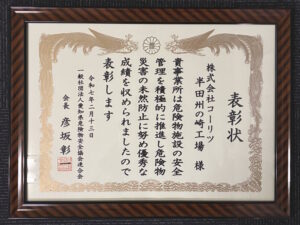 表彰状
株式会社フーリツ
半田州の崎工場 様
貴事業所は危険物施設の安全
管理を積極的に推進し危険物
災害の未然防止に努め優秀な
成績を収められましたので
表彰します
令和七年二月十三日
一般社団法人愛知県危険物安全協会連合会
会長 彦坂彰